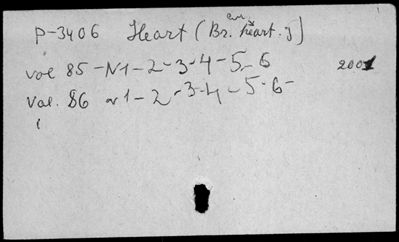 P-3406 Heart (Br. heart. J)
vol 85 - N1 - 2 - 3 - 4 - 5 - 6 2001
Vol. 86 N1 - 2 - 3 - 4 - 5 - 6 -